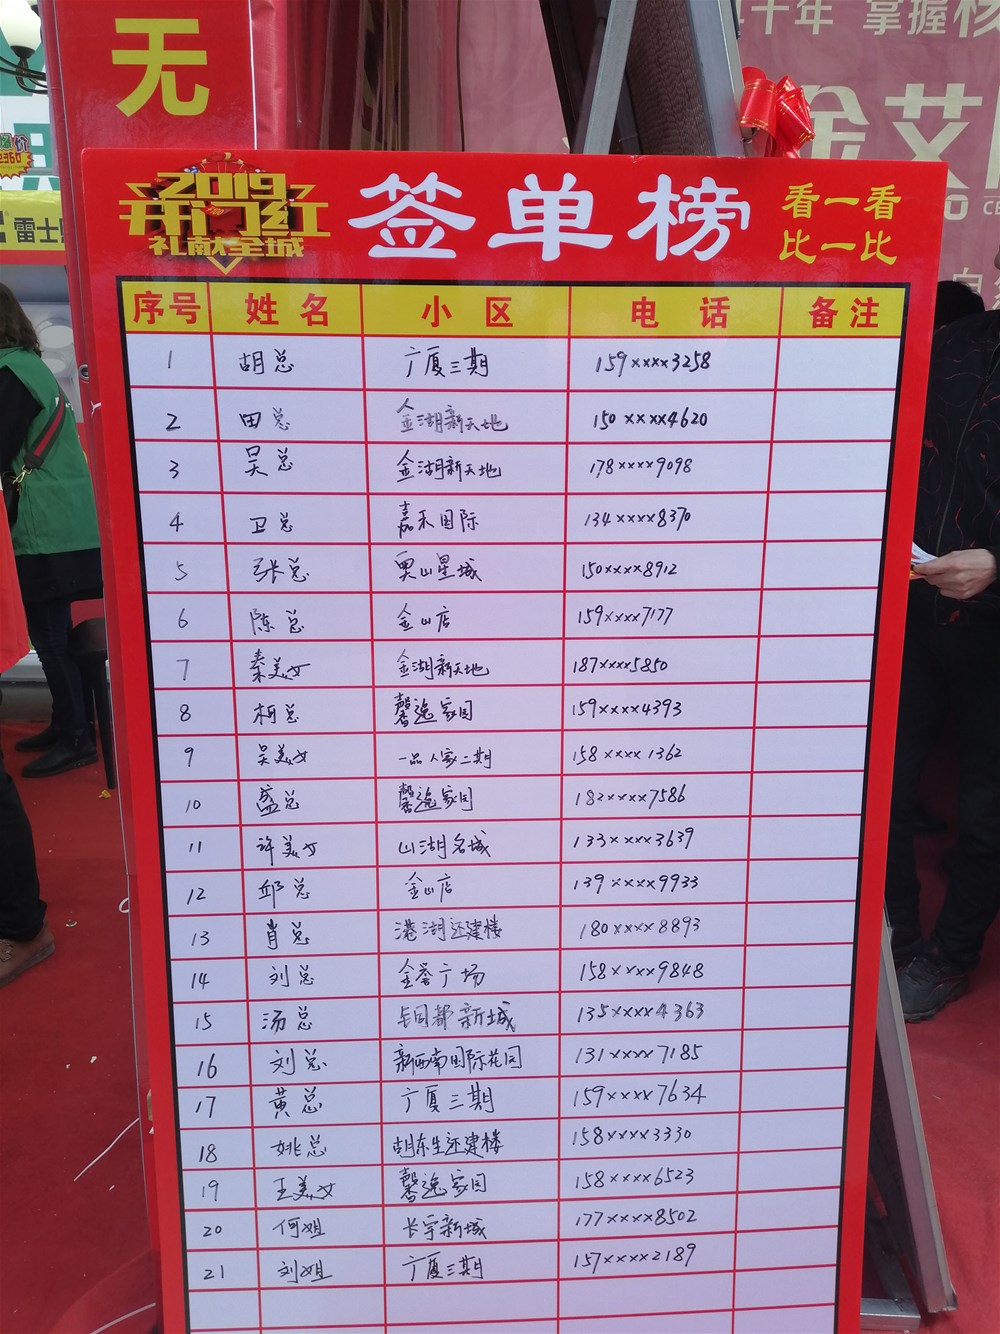 无
十年 掌握
金艾
雷士
2019
开门红
礼献全城
签单榜
看一看
比一比
序号 姓名 小区 电话 备注
1 胡总 广厦三期 159××××3258
2 田总 金湖新天地 150××××4620
3 吴总 金湖新天地 178××××9098
4 卫总 嘉禾国际 134××××8370
5 张总 奥山星城 150××××8912
6 陈总 金山店 159××××7177
7 秦美女 金湖新天地 187××××5850
8 柯总 馨逸家园 159××××4393
9 吴美女 一品人家二期 158××××1362
10 盛总 馨逸家园 182××××7586
11 许美女 山湖名城 133××××3639
12 邱总 金山店 139××××9933
13 肖总 港湖还建楼 180××××8893
14 刘总 金誉广场 158××××9848
15 汤总 铜都新城 135××××4363
16 刘总 新西南国际花园 131××××7185
17 黄总 广厦三期 159××××7634
18 姚总 胡东生还建楼 158××××3330
19 王美女 馨逸家园 158××××6523
20 何姐 长宇新城 177××××8502
21 刘姐 广厦三期 157××××2189